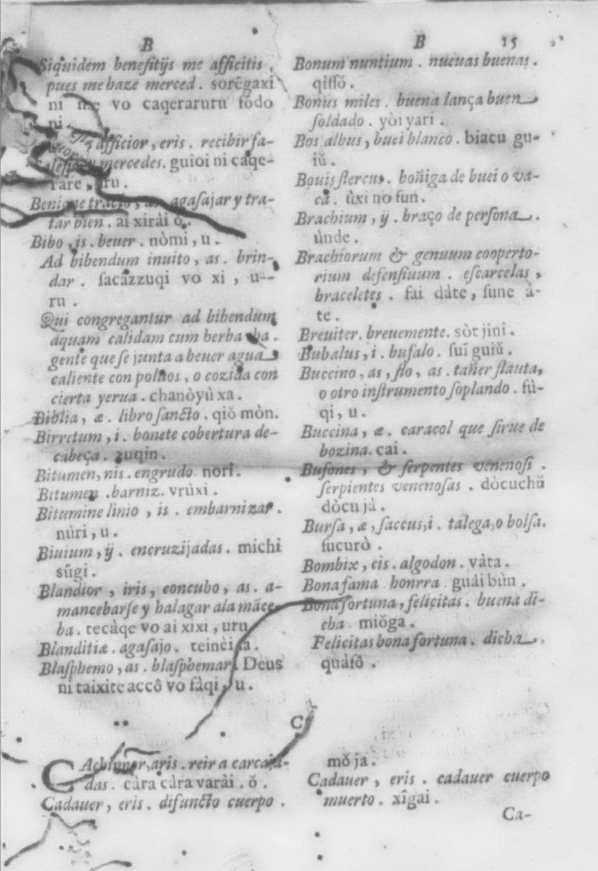 B
Siquidem benefitijs me afficitis,
pues me haze merced. sorẽgaxi
ni me vo caqeraruru fodo
ni.
afficior, eris. recibir fa-
mercedes. guioi ni caqe-
rare, uru.
Benigne tracto, as. agasajar y tra-
tar bien. ai xirài ŏ.
Bibo, is. beuer. nòmi, u.
Ad bibendum inuito, as. brin-
dar. sacazzuqi vo xi, u-
ru.
Qui congregantur ad bibendum
aquam calidam cum herba cha.
gente que se junta a beuer agua
caliente con poluos, o cozida con
cierta yerua. chanòyù xa.
Biblia, æ. libro sancto. qiŏ mòn.
Birretum, i. bonete cobertura de-
cabeça. zuqin.
Bitumen, nis. engrudo. nori.
Bitumen. barniz. vrùxi.
Bitumine linio, is. embarnizar.
nùri, u.
Biuium, ij. encruzijadas. michi
sũgi.
Blandior, iris, concubo, as. a-
mancebarse y halagar ala mãce-
ba. tecàqe vo ai xixi, uru.
Blanditiæ. agasajo. teinèi sa.
Blasphemo, as. blasphemar. Deus
ni taixite accô vo fàqi, u.
CAchinnor, aris. reir a carcaja-
das. càra càra varài. ŏ.
Cadauer, eris. difuncto cuerpo.
B 15
Bonum nuntium. nueuas buenas.
qissŏ.
Bonus miles. buena lança buen
soldado. yòi yari.
Bos albus, buei blanco. biacu gu-
iũ.
Bouis stercus. boñiga de buei o va-
ca. ùxi no fun.
Brachium, ij. braço de persona.
ùnde.
Brachiorum & genuum cooperto-
rium defensiuum. escarcelas,
braceletes. fai dàte, sune à-
te.
Breuiter. breuemente. sòt jini.
Bubalus, i. bufalo. sui guiũ.
Buccino, as, flo, as. tañer flauta,
o otro instrumento soplando. fù-
qi, u.
Buccina, æ. caracol que sirue de
bozina. cai.
Bufones, & serpentes venenosi.
serpientes venenosas. dòcuchũ
dòcu jà.
Bursa, æ, saccus, i. talega, o bolsa.
fucurò.
Bombix, cis. algodon. vàta.
Bona fama. honrra. guài bùn.
Bona fortuna, felicitas. buena di-
cha. miŏga.
Felicitas bona fortuna. dicha.
quàfŏ.
C
mŏ jà.
Cadauer, eris. cadauer cuerpo
muerto. xîgai.
Ca-